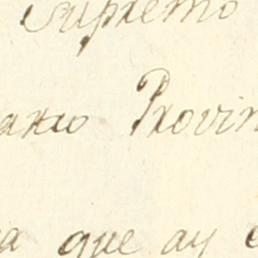 Supremo
ario Provin
a que ay